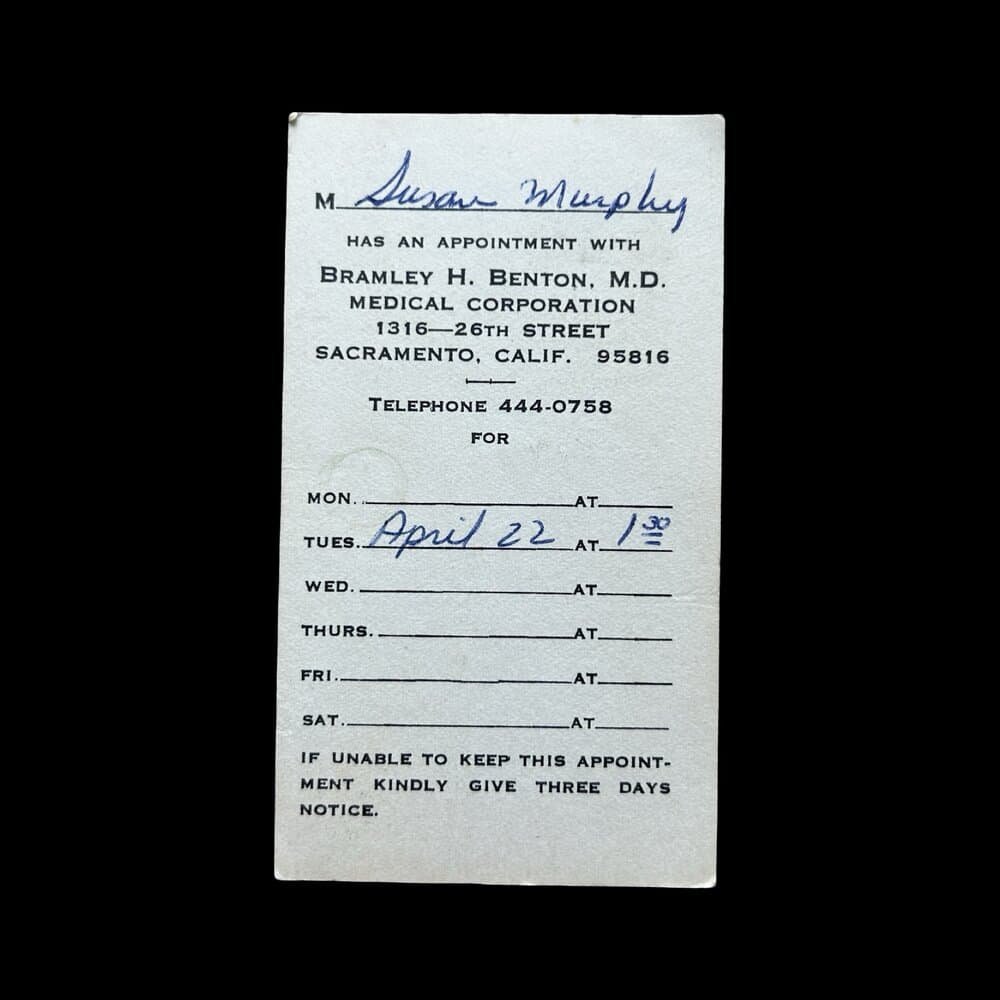 M Susan Murphy
HAS AN APPOINTMENT WITH
BRAMLEY H. BENTON, M.D.
MEDICAL CORPORATION
1316—26TH STREET
SACRAMENTO, CALIF. 95816
TELEPHONE 444-0758
FOR
MON. AT
TUES. April 22 AT 1 30
WED. AT
THURS. AT
FRI. AT
SAT. AT
IF UNABLE TO KEEP THIS APPOINT-
MENT KINDLY GIVE THREE DAYS
NOTICE.